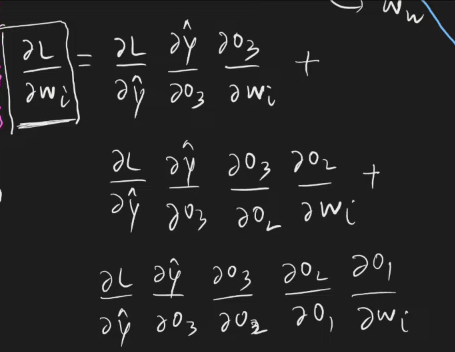 → Ww
∂L/∂wᵢ = ∂L/∂ŷ ∂ŷ/∂o₃ ∂o₃/∂wᵢ +
∂L/∂ŷ ∂ŷ/∂o₃ ∂o₃/∂o₂ ∂o₂/∂wᵢ +
∂L/∂ŷ ∂ŷ/∂o₃ ∂o₃/∂o₂ ∂o₂/∂o₁ ∂o₁/∂wᵢ